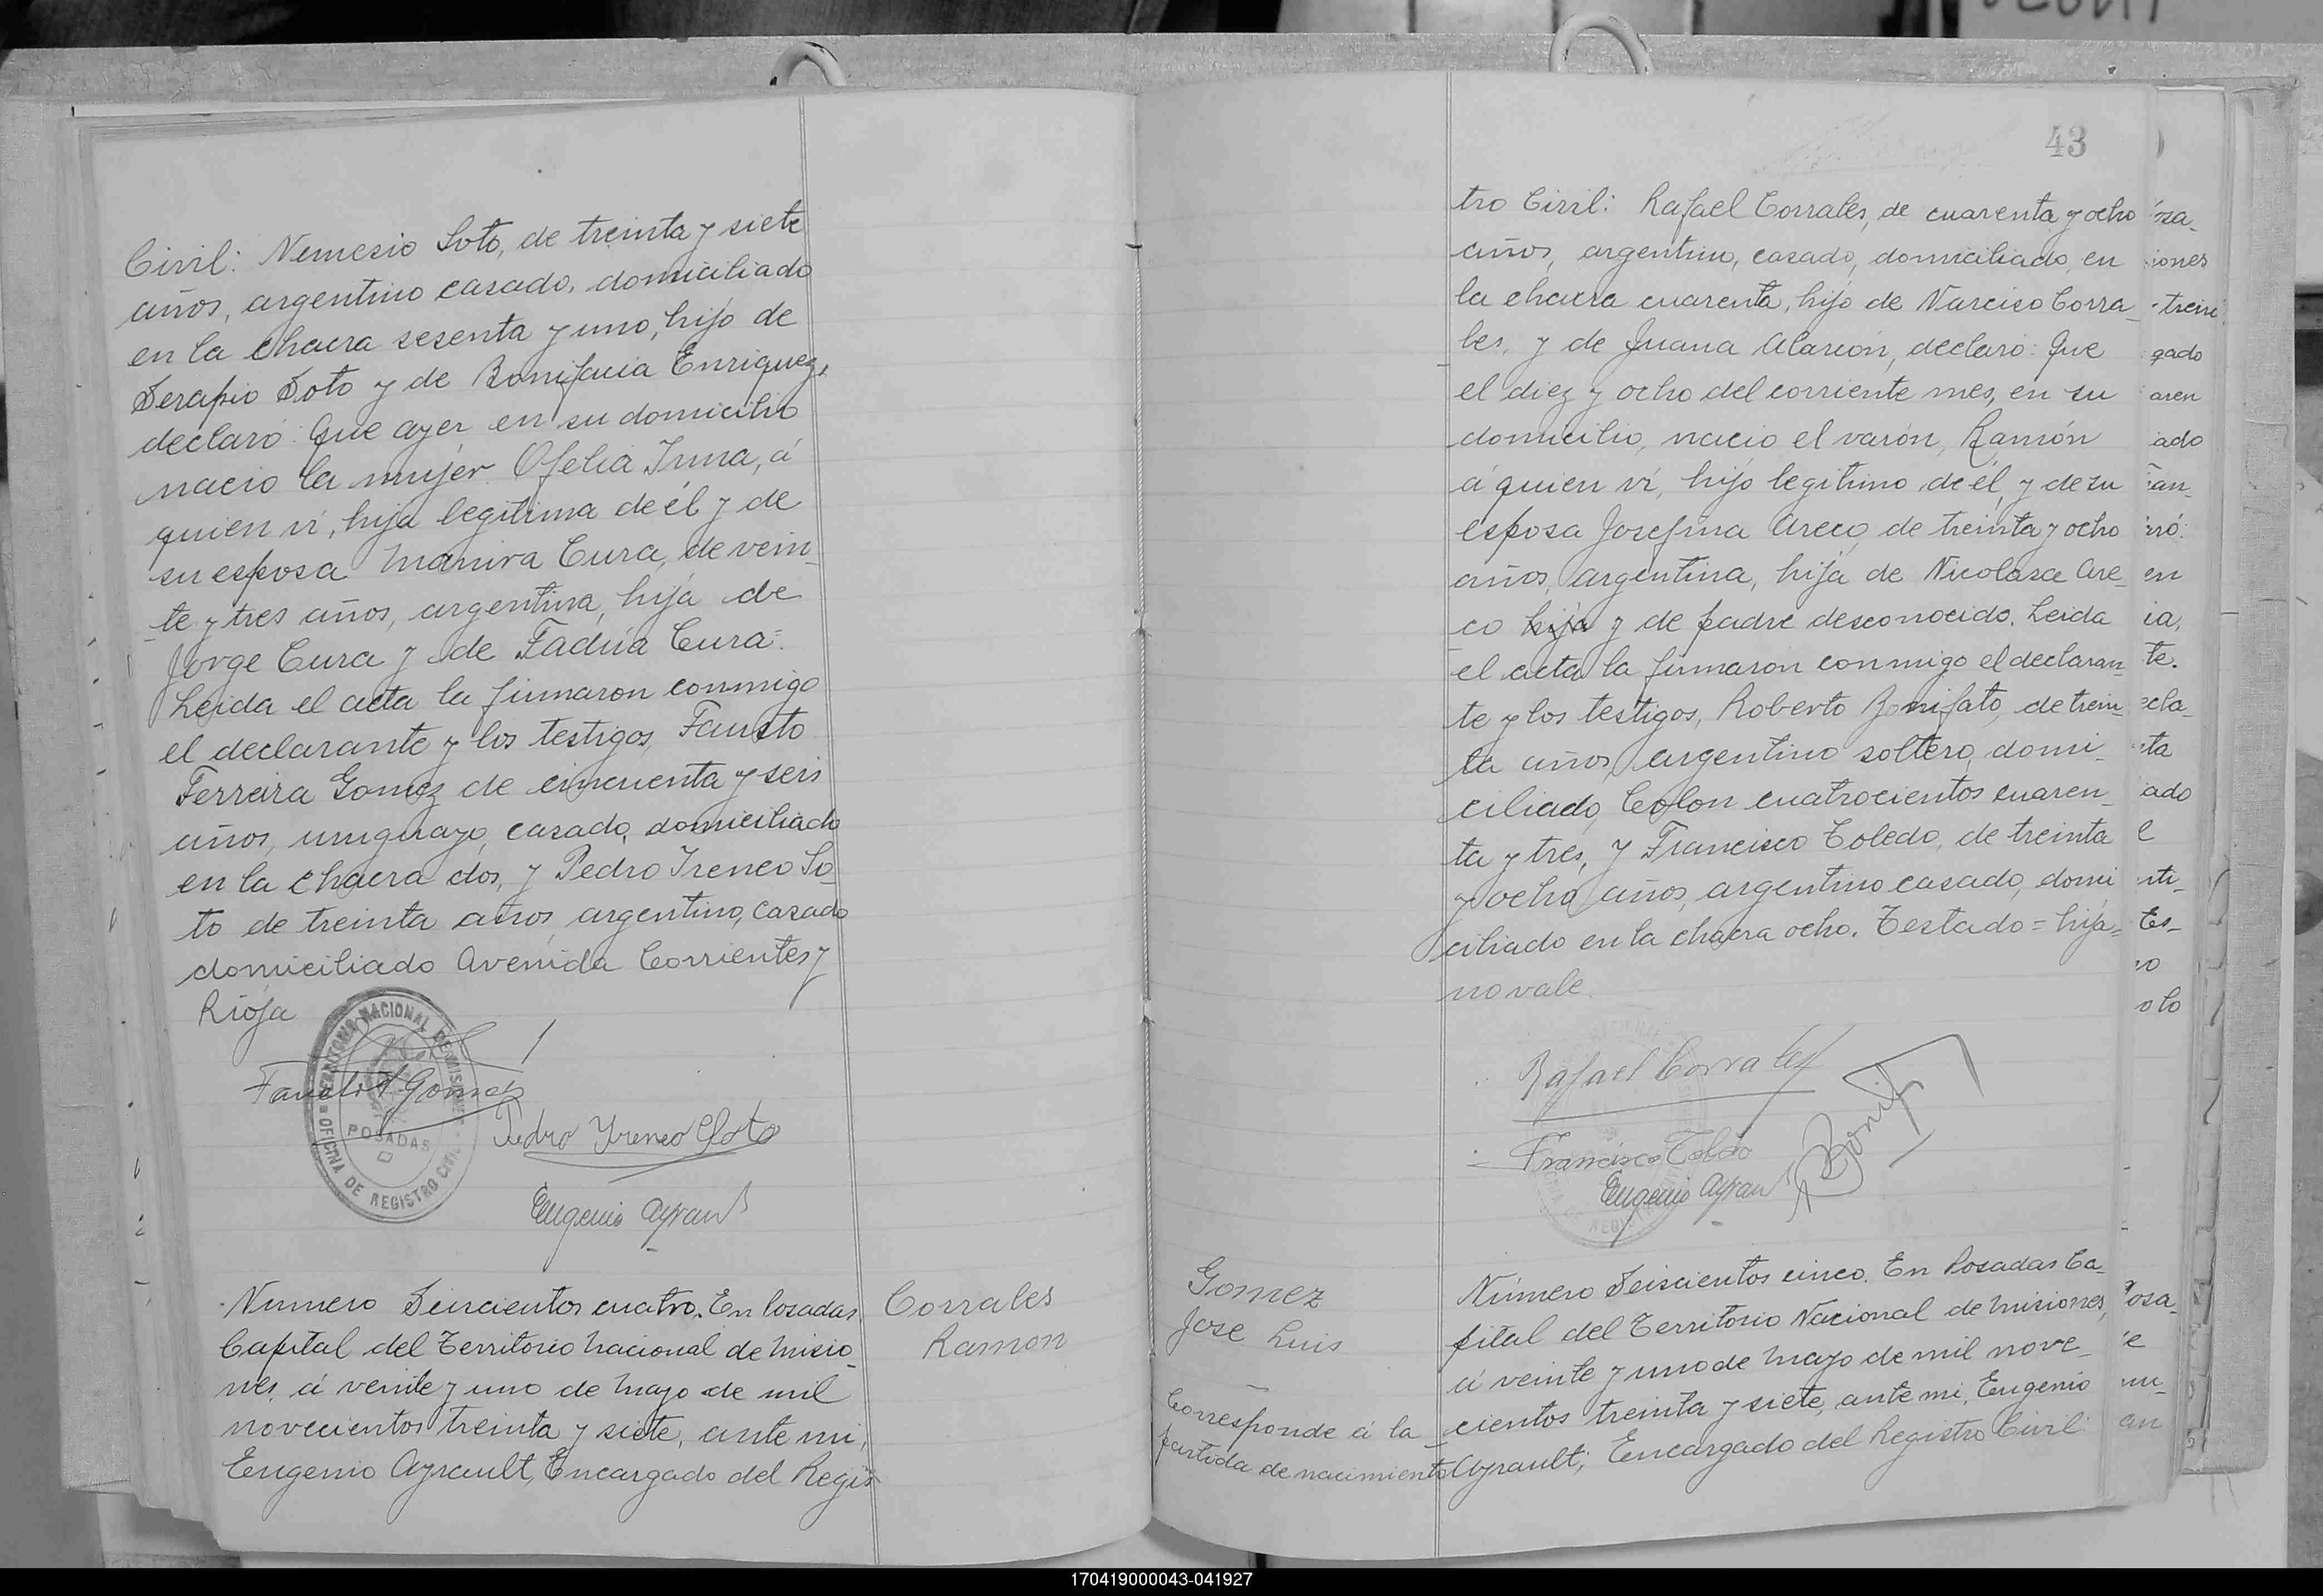 Civil: Nemesio Soto, de treinta y siete
años, argentino casado, domiciliado
en la chacra sesenta y uno, hijo de
Serapio Soto y de Bonifacia Enriquez,
declaró: Que ayer en su domicilio
nacio la mujer Ofelia Irma, á
quien ví, hija legitima de él y de
su esposa Maniva Cura, de vein_
te y tres años, argentina, hija de
Jorge Cura y de Fadúa Cura.
Leida el acta la firmaron conmigo
el declarante y los testigos, Fausto
Ferreira Gomez de cincuenta y seis
años, uruguayo, casado, domiciliado
en la chacra dos, y Pedro Ireneo So_
to de treinta años argentino, casado
domiciliado Avenida Corrientes y
Rioja
GOBERNACION NACIONAL DE MISIONES
POSADAS
OFICINA DE REGISTRO CIVIL
Gomez
Pedro Yreneo Soto
Eugenio Ayrault
Número Seiscientos cuatro. En Posadas
Capital del Territorio Nacional de Misio_
nes, á veinte y uno de Mayo de mil
novecientos treinta y siete, ante mi,
Eugenio Ayrault, Encargado del Regis
Corrales
Ramon
43
tro Civil: Rafael Corrales, de cuarenta y ocho
años, argentino, casado, domiciliado, en
la chacra cuarenta, hijo de Narciso Corra_
les, y de Juana Alarcón, declaró: Que
el diez y ocho del corriente mes, en su
domicilio, nacio el varón, Ramón
á quien ví, hijo legitimo de él, y de su
esposa Josefina Areco, de treinta y ocho
años, argentina, hija de Nicolasa Are_
co hija y de padre desconocido. Leida
el acta la firmaron conmigo el declaran_
te y los testigos, Roberto Bonifato, de trein_
ta años, argentino soltero, domi_
ciliado, Colon cuatrocientos cuaren_
ta y tres, y Francisco Toledo, de treinta
y ocho años, argentino casado, domi
ciliado en la chacra ocho. Testado = hija =
no vale.
Rafael Corrales
Francisco Toledo
Eugenio Ayrault
Gomez
Jose Luis
Corresponde á la
partida de nacimiento
Número Seiscientos cinco. En Posadas Ca_
pital del Territorio Nacional de Misiones,
á veinte y uno de Mayo de mil nove_
cientos treinta y siete, ante mi, Eugenio
Ayrault, Encargado del Registro Civil:
170419000043-041927